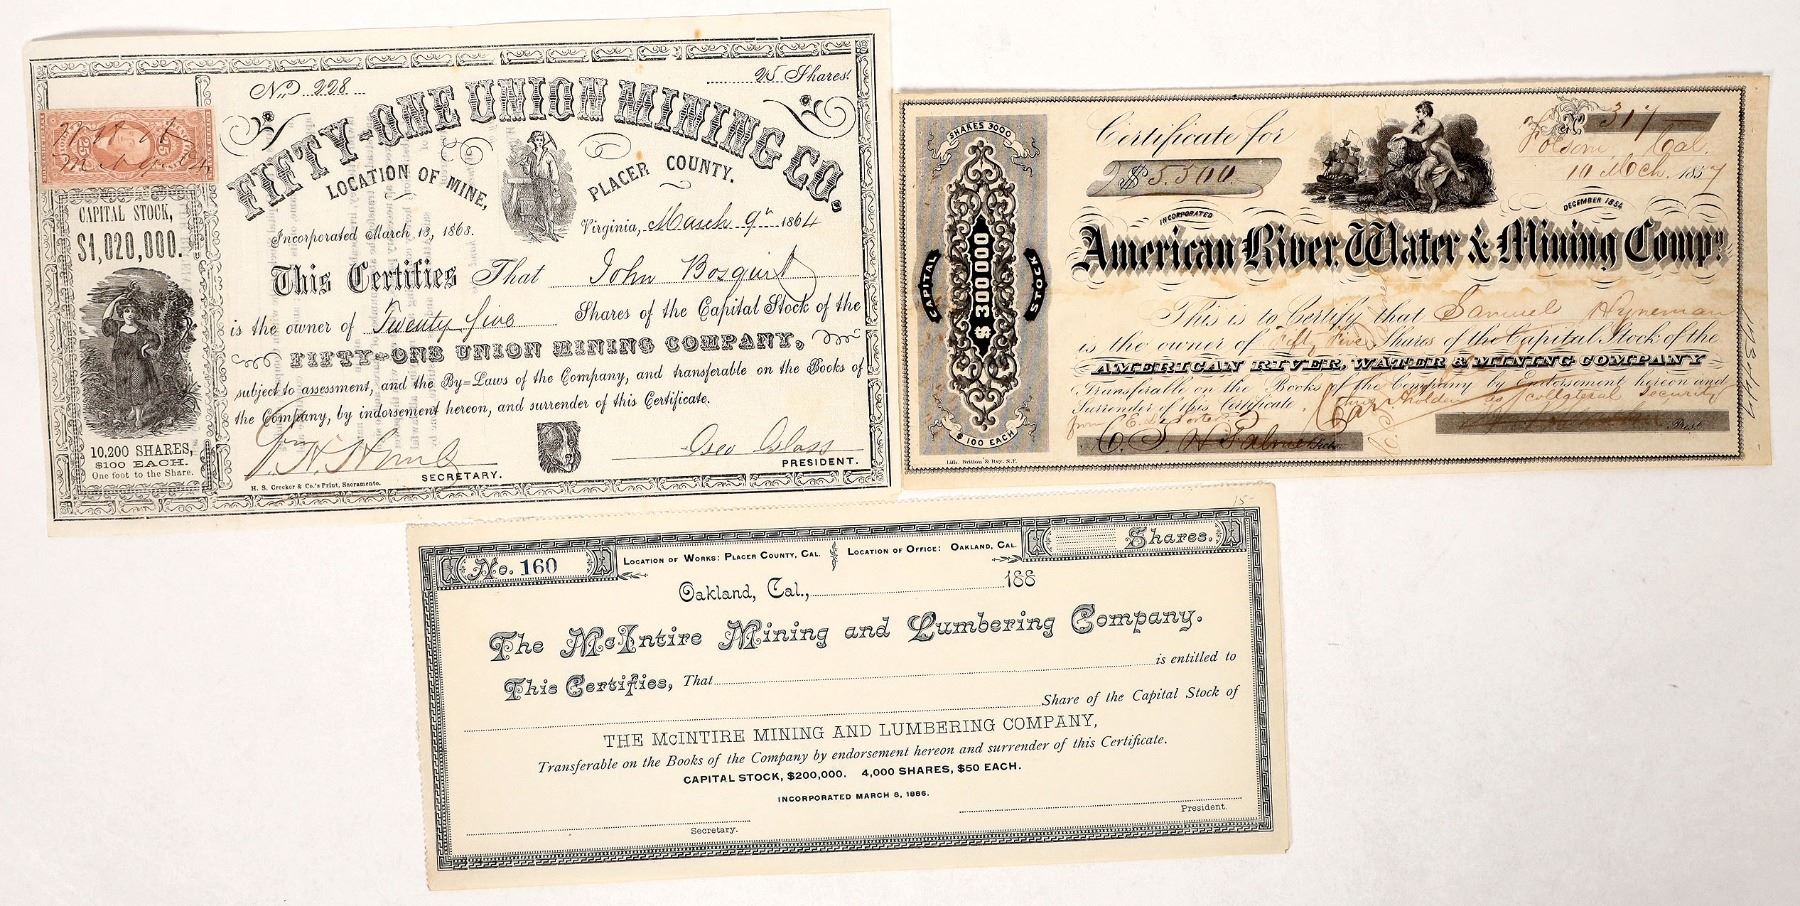 No. 228
25 Shares
FIFTY-ONE UNION MINING CO.
LOCATION OF MINE, PLACER COUNTY.
Incorporated March 13, 1863. Virginia, March 9th 1864
This Certifies That John Bosquit
is the owner of Twenty five Shares of the Capital Stock of the
FIFTY-ONE UNION MINING COMPANY,
subject to assessment, and the By=Laws of the Company, and transferable on the Books of
the Company, by indorsement hereon, and surrender of this Certificate.
SECRETARY.
Geo Glass
PRESIDENT.
H. S. Crocker & Co.'s Print, Sacramento.
CAPITAL STOCK,
$1,020,000.
10,200 SHARES,
$100 EACH.
One foot to the Share.
SHARES 3000
CAPITAL
$300000
STOCK
$100 EACH
Lith. Britton & Rey, S.F.
Certificate for
$5.500
317
Folsom, Cal.
10 Mch. 1857
INCORPORATED
DECEMBER 1854
American River, Water & Mining Compy.
This is to Certify that Samuel Hyneman
is the owner of Fifty five Shares of the Capital Stock of the
AMERICAN RIVER, WATER & MINING COMPANY
Transferable on the Books of the Company by Endorsement hereon and
Surrender of this Certificate. holder as collateral security
from
Prest
No. 160
LOCATION OF WORKS: PLACER COUNTY, CAL.
LOCATION OF OFFICE: OAKLAND, CAL.
Shares.
15-
Oakland, Cal., 188
The McIntire Mining and Lumbering Company.
This Certifies, That is entitled to
Share of the Capital Stock of
THE McINTIRE MINING AND LUMBERING COMPANY,
Transferable on the Books of the Company by endorsement hereon and surrender of this Certificate.
CAPITAL STOCK, $200,000. 4,000 SHARES, $50 EACH.
INCORPORATED MARCH 8, 1886.
Secretary.
President.